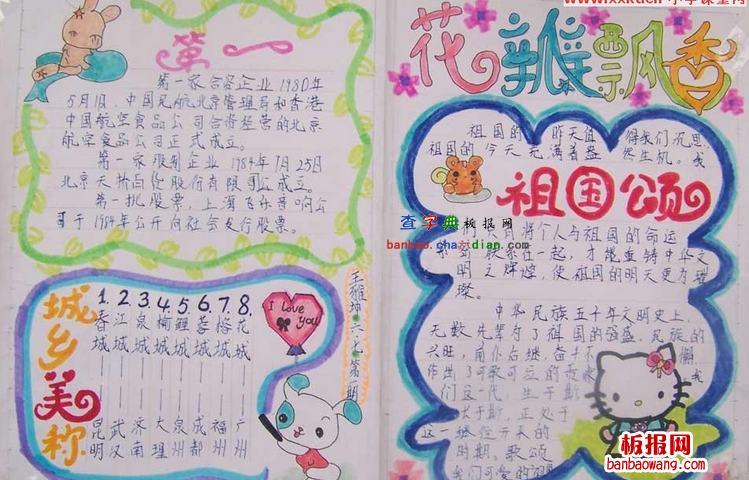 第一
第一家合资企业1980年
5月1日，中国民航北京管理局和香港
中国航空食品公司合资经营的北京
航空食品公司正式成立。
第一家股制企业1984年7月25日
北京天桥百货股份有限公司成立。
第一批股票，上海飞乐音响公
司于1984年公开向社会发行股票。
城乡美称
1. 2. 3. 4. 5. 6. 7. 8.
春 江 泉 榆 鲤 蓉 榕 花
城 城 城 城 城 城 城 城
昆 武 济 大 泉 成 福 广
明 汉 南 理 州 都 州 州
I love
you
第一期
花瓣飘香
祖国的 昨天值 得我们沉思
祖国的今天充满着盎 然生机。我
祖国颂
们只有将个人与祖国的命运
联系在一起，才能重铸中华文
明之辉煌，使祖国的明天更为璀
璨。
中华民族五千年文明史上，
无数先辈为了祖国的强盛，民族的
兴旺，前仆后继，奋斗不 懈
作出了可歌可泣的 我
们这一代，生于斯
长于斯，正处于
这一继往开来的
时期，歌颂
我们可爱的
查字典 板报网
banbao.chazidian.com
板报网
banbaowang.com